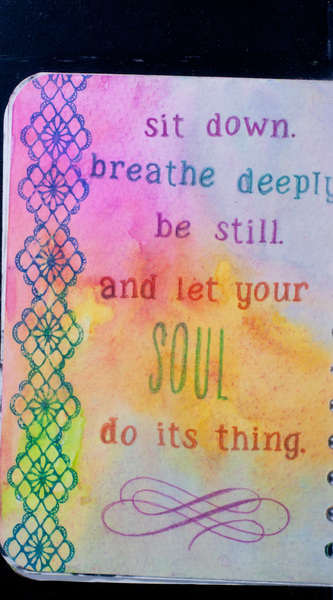 sit down.
breathe deeply
be still.
and let your
SOUL
do its thing.